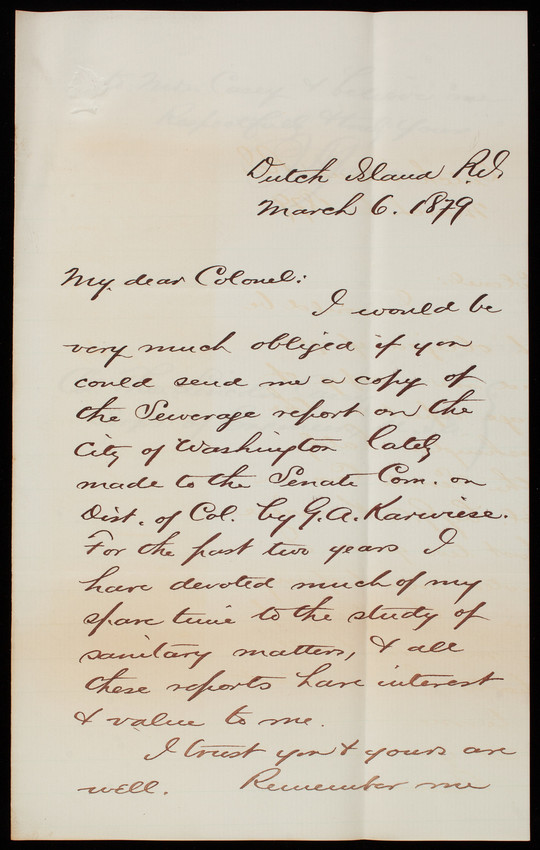 Dutch Island R.I.
March 6. 1879
My dear Colonel:
I would be
very much obliged if you
could send me a copy of
the Sewerage report on the
City of Washington lately
made to the Senate Com. on
Dist. of Col. by G. A. Karwiese.
For the past two years I
have devoted much of my
spare time to the study of
sanitary matters, & all
these reports have interest
& value to me.
I trust you & yours are
well. Remember me